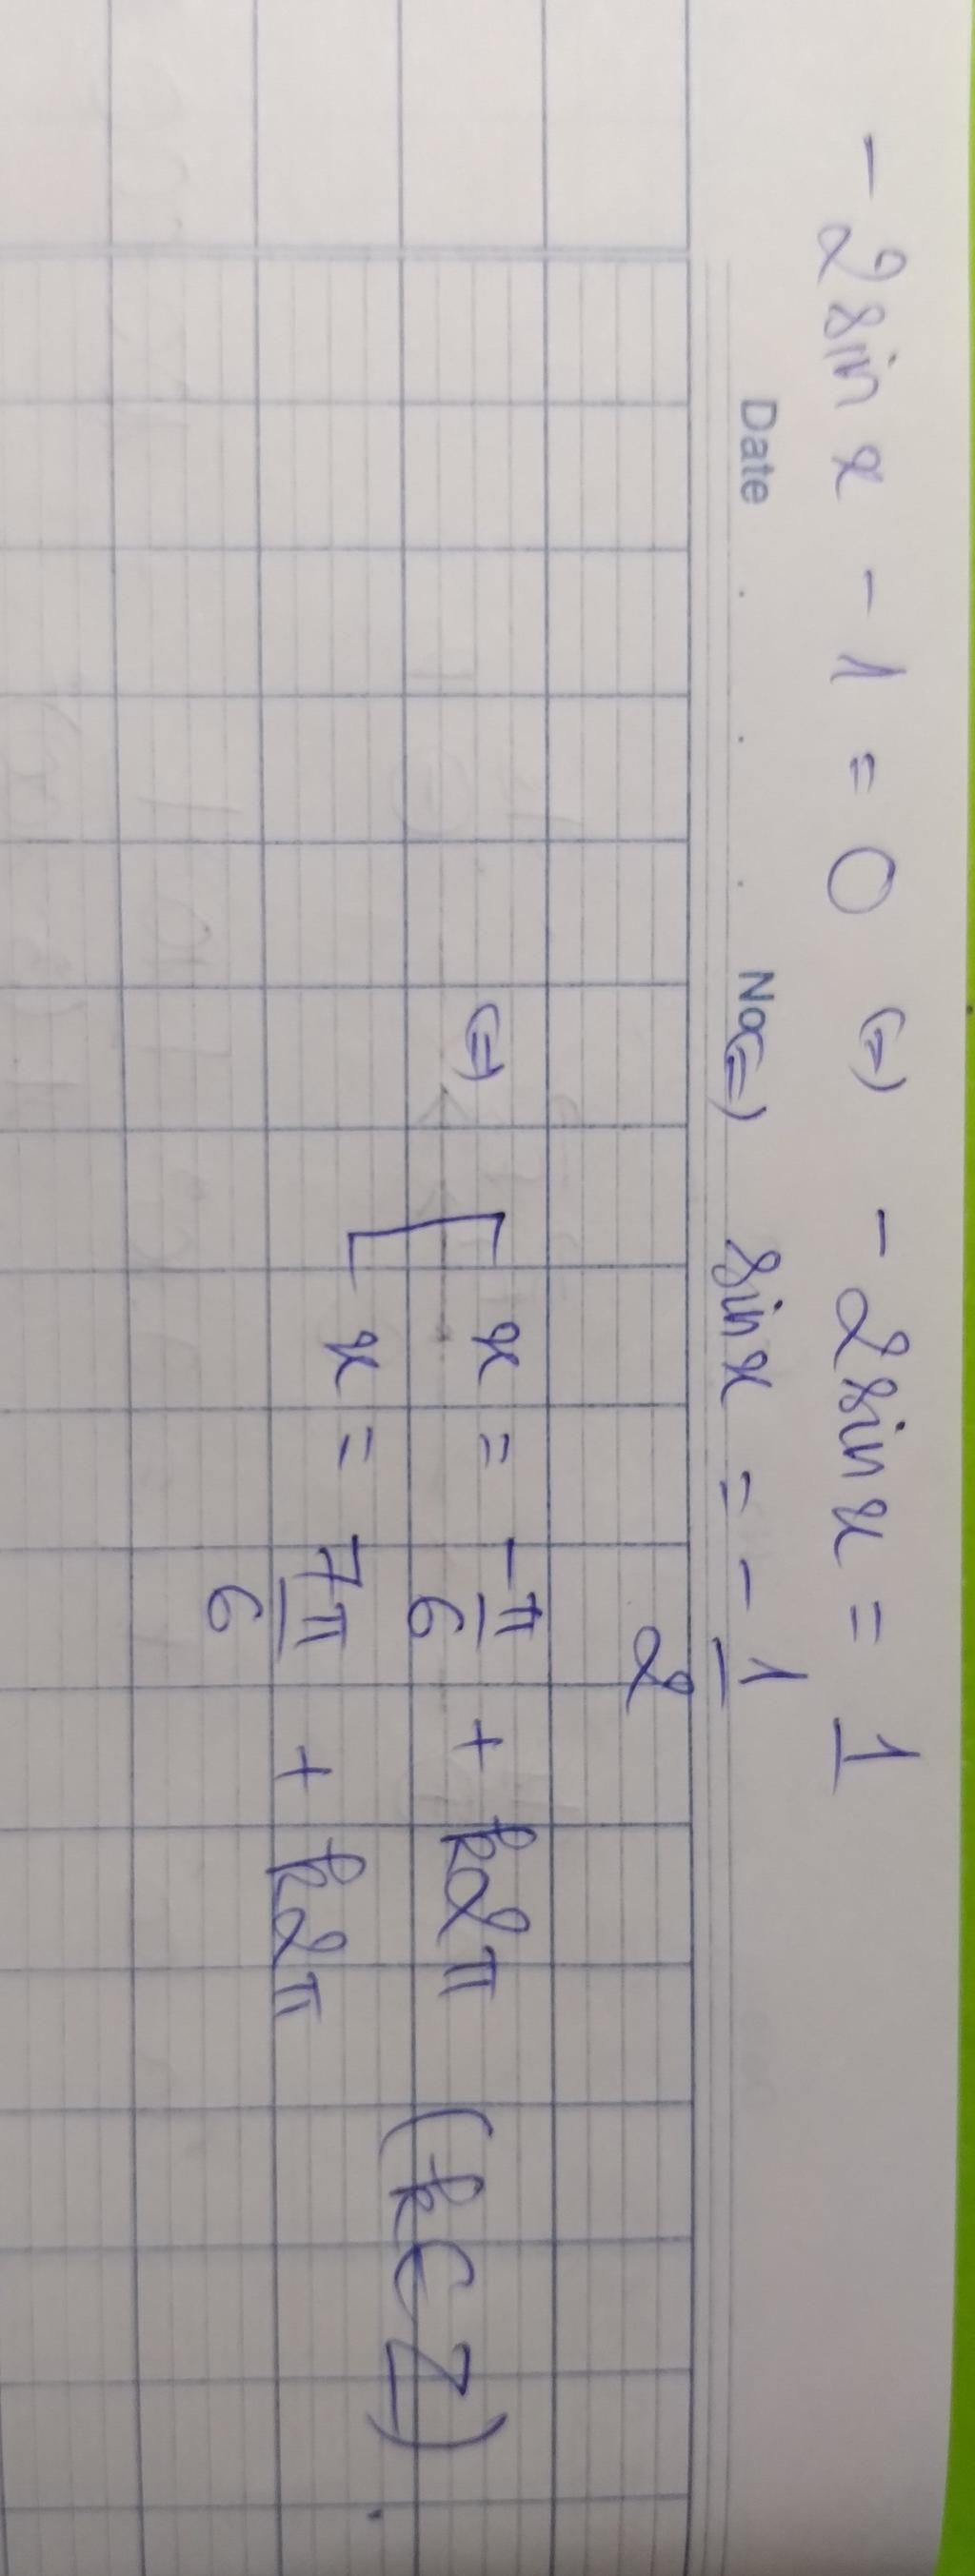 - 2sin x - 1 = 0 (=) - 2sin x = 1
Date . . . No (=) sin x = - 1/2
(=) [ x = -π/6 + k2π
[ x = 7π/6 + k2π (k ∈ Z)